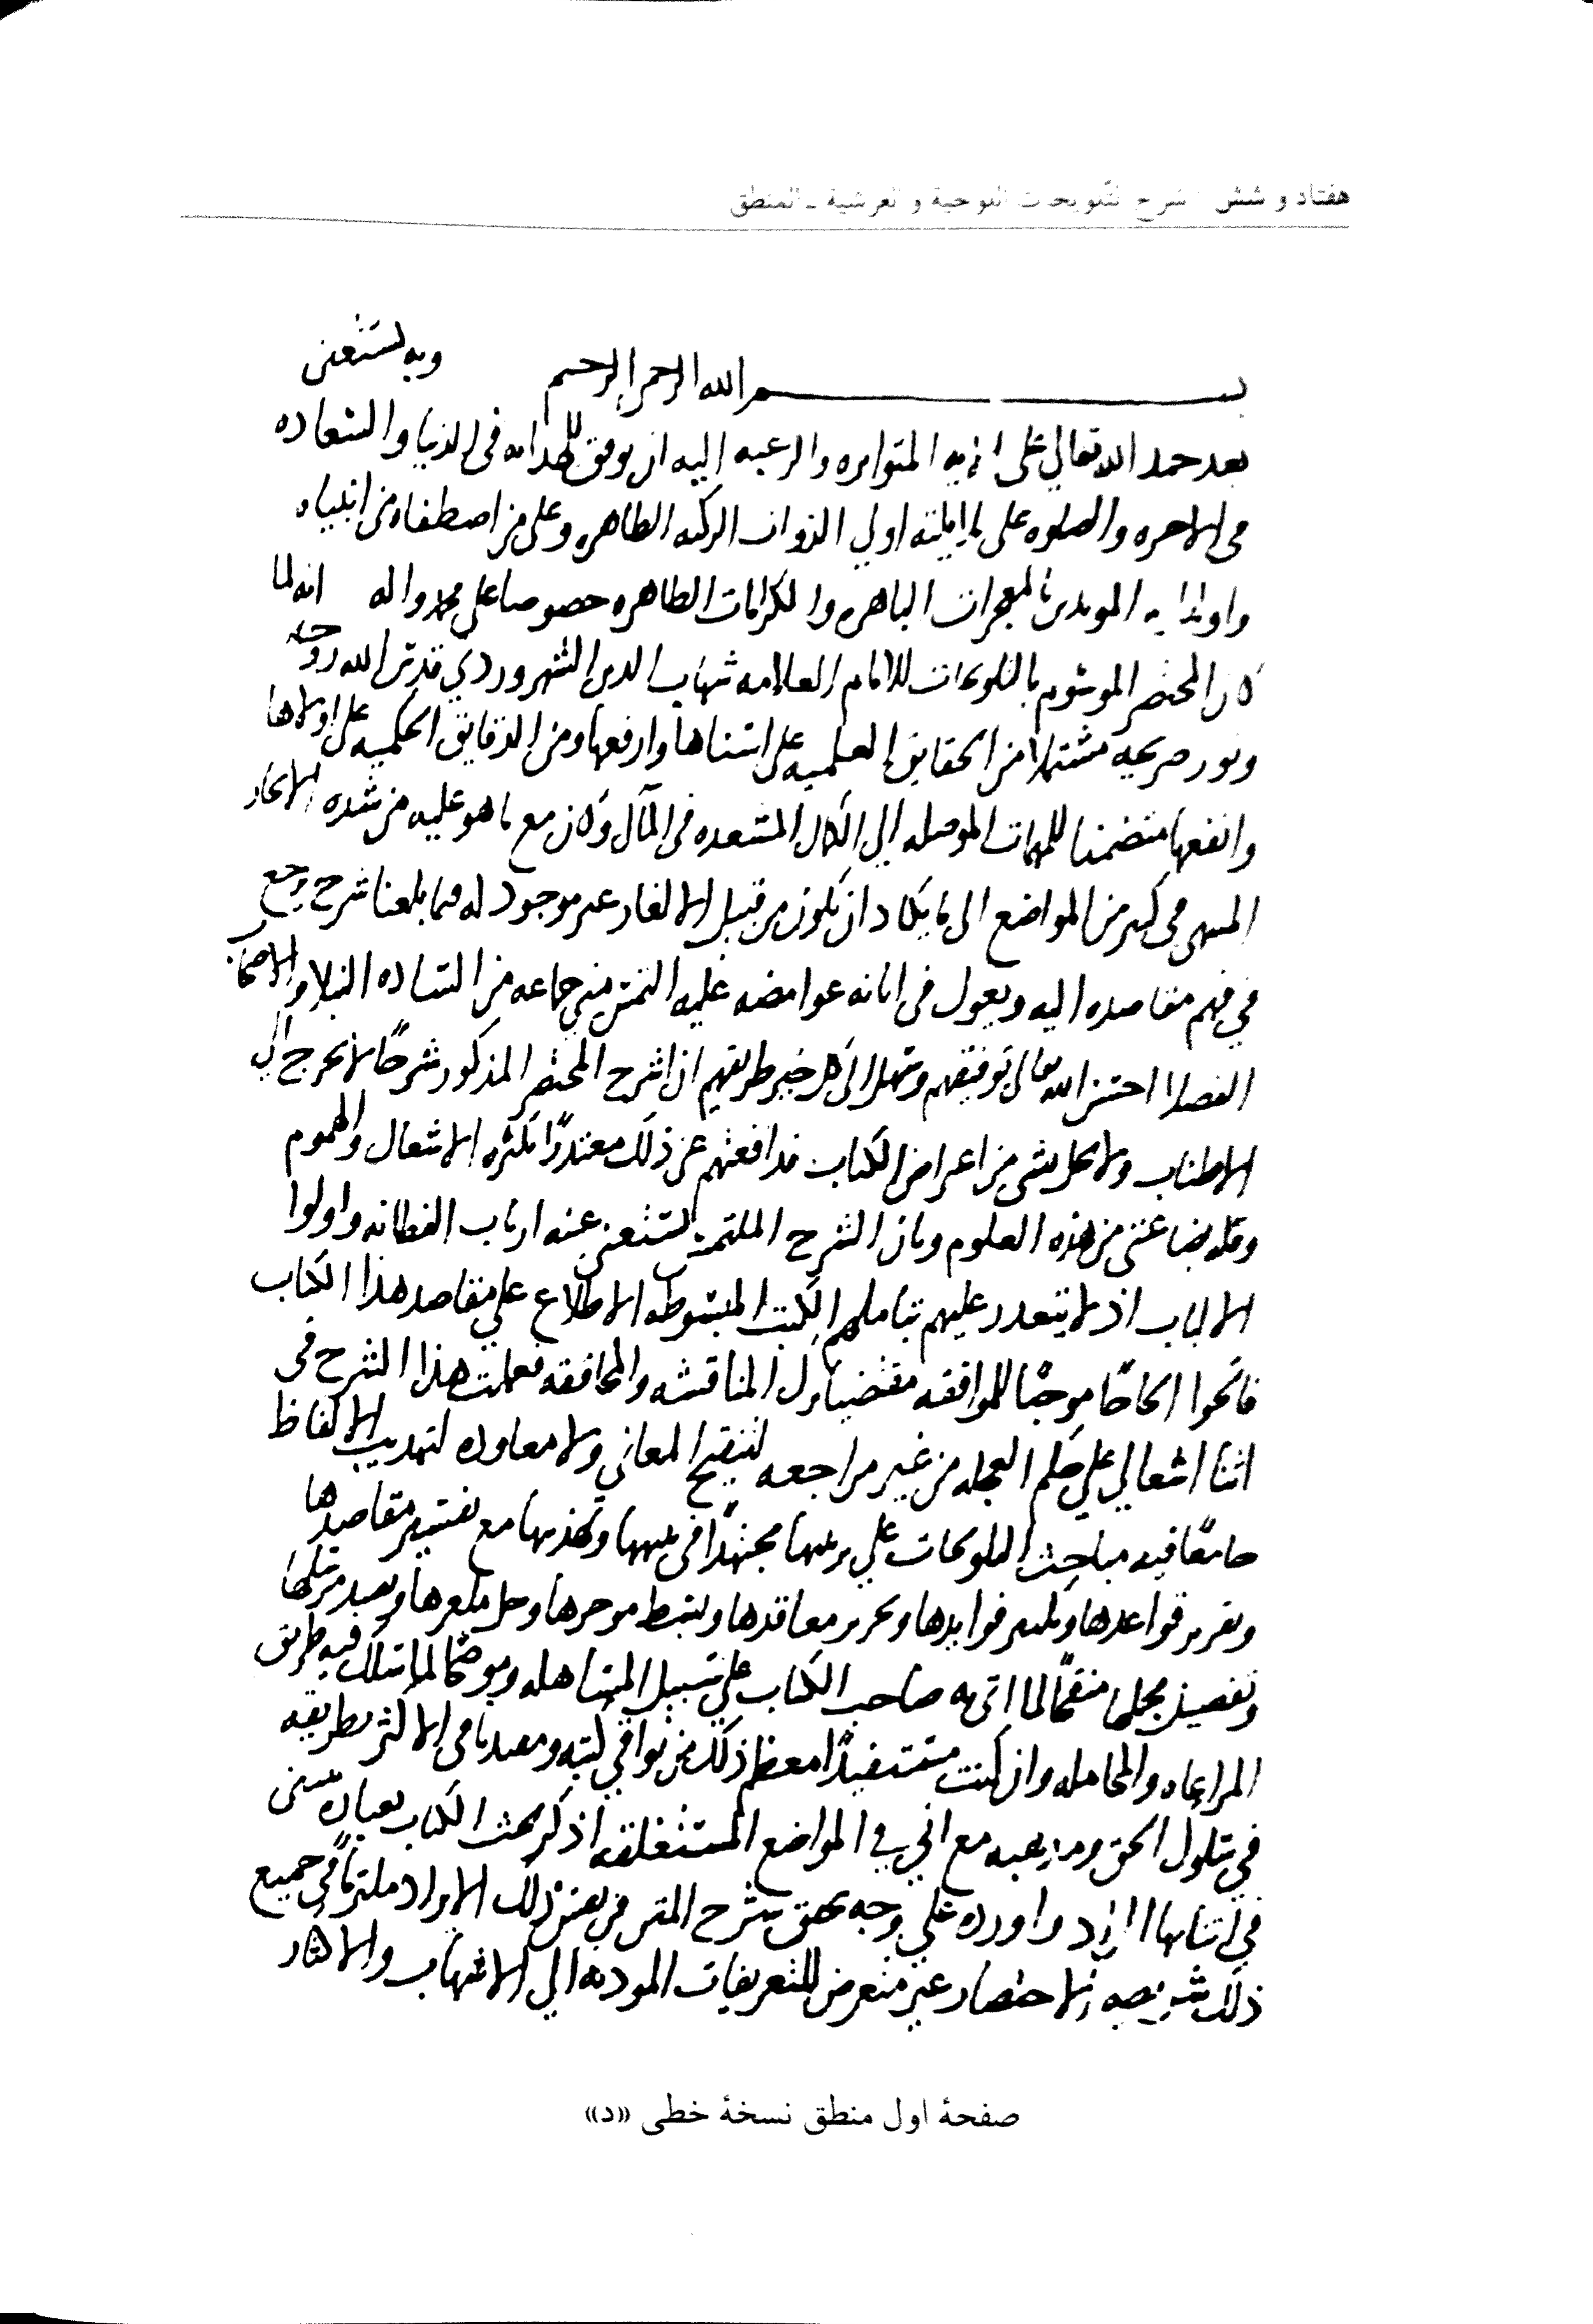 هفتاد و شش شرح التلويحات اللوحية و العرشية ـ المنطق
بسم الله الرحمن الرحيم وبه نستعين
بعد حمد الله تعالى على المتواتره والرغبه اليه ان يوفق للهدايه فى الدنيا والسعاده
فى الاخره والصلوه على ملايكته اولي الذوات الزكيه الطاهره وعلى من اصطفاه من انبياه
واوليايه المويدين بالمعجزات الباهره والكرامات الظاهره خصوصا على محمد واله انه لما
كان المختصر الموسوم بالتلويحات للامام العلامه شهاب الدين السهروردي قدس الله روحه
ونور ضريحه مشتملا من الحقايق العلميه على اسناها وارفعها ومن الدقايق الحكميه على اولاها
وانفعها متضمنا للمهمات الموصله الي الكمال المسعده فى المآل وكان مع ما هو عليه من شده الايجاز
المنتهى فى كثير من المواضع الى ما يكاد ان يكون من قبيل الالغاز غير موجود له فيما بلغنا شرح يرجع
في فهم مقاصده اليه ويعول فى ابانه غوامضه عليه التمس مني جماعه من الساده النبلا والاصحاب
الفضلا احسن الله تعالى توفيقهم وسهل الى كل خير طريقهم ان اشرح المختصر المذكور شرحًا لا يخرج الي
الاطناب ولا يخل بشى من اغراض الكتاب فدافعتهم عن ذلك معتذرًا بكثره الاشغال والهموم
وقله بضاعتى من هذه العلوم وبان الشرح الملتمس يستغنى عنه ارباب الفطانه واولوا
الالباب اذ لا يتعذر عليهم بتاملهم الكتب المبسوطه الاطلاع علي مقاصد هذا الكتاب
فالحوا الحاحًا موجبًا للموافقه مقتضيا ترك المناقشه والمحاققه فعملت هذا الشرح فى
اثنا اشغالي علي حكم العجله من غير مراجعه لتنقيح المعاني ولا معاوده لتهذيب الالفاظ
جامعًا فيه مباحث التلويحات علي ترتيبها مجتهدًا فى وتهذيبها مع تفسير مقاصدها
وتقرير قواعدها وتكثير فوايدها وتحرير معاقدها وبسط موجزها وحل ملغزها وتقييد مرسلها
وتفصيل مجملها منقحًا لما اتى به صاحب الكتاب علي سبيل المساهله وموضحًا لما سلك فيه طريق
المراعاه والمجامله وان كنت مستفيدًا معظم ذلك من بواقي كتبه ومقتديا فى الاكثر بطريقه
في سلوك الحق ومذهبه مع اني في المواضع المستغلقه اذكر بحث الكتاب بعباره
في اثنايها ازيد واورده علي وجه يحقق شرح المتن من بعض ذلك الايراد ملتزمًا في جميع
ذلك الاختصار غير متعرض للتعريفات الموديه الي الاسهاب والاكثار
صفحۀ اول منطق نسخۀ خطی «د»